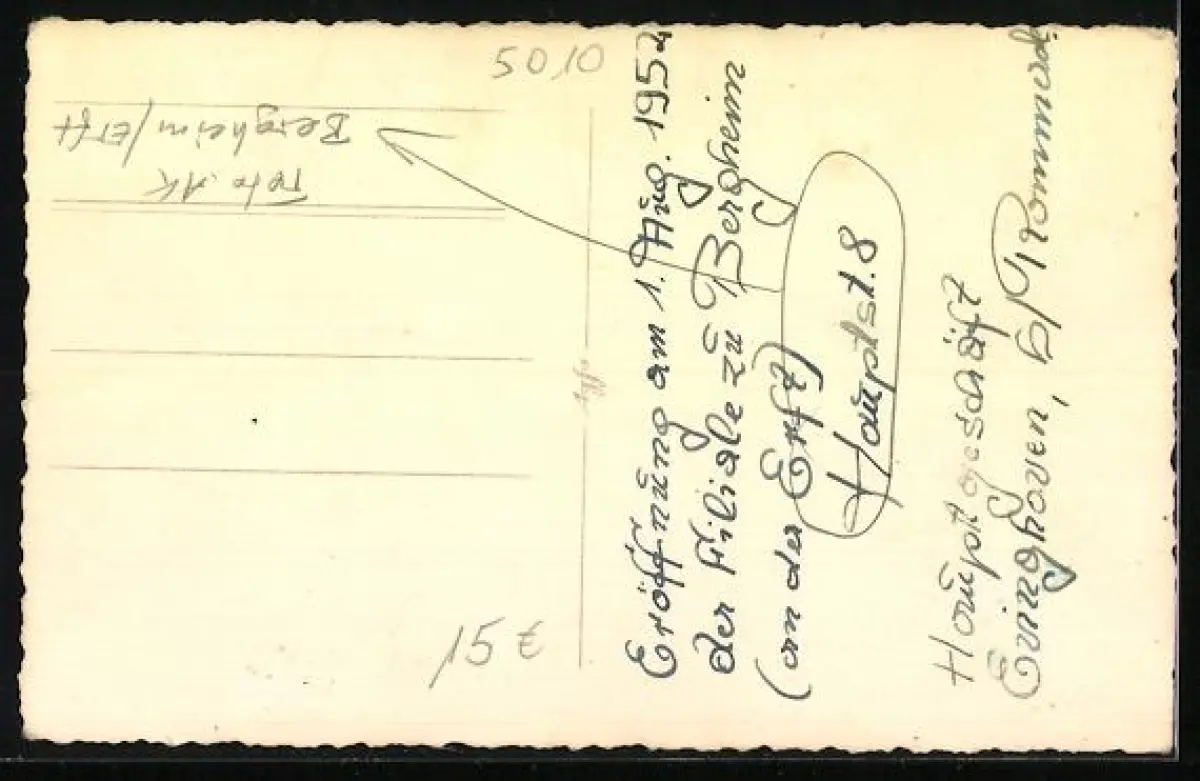 5010
Bergheim/Erft
Foto AK
Eröffnung am 1. Aug. 1952
der Filiale zu Bergheim
(an der Erft)
Hauptst. 8
Hauptgeschäft
Evinghoven, b/Rommi
15 €